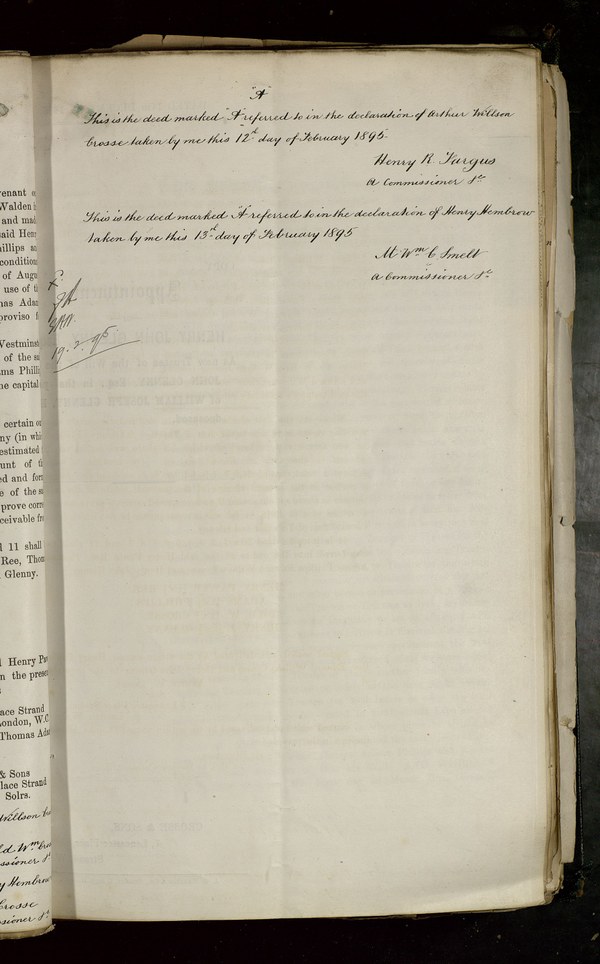 "A"
This is the deed marked "A" referred to in the declaration of Arthur Willson
Crosse taken by me this 12th day of February 1895.
Henry R. Fargus
A Commissioner &c
This is the deed marked "A" referred to in the declaration of Henry Hembrow
taken by me this 13th day of February 1895
Wm C Smelt
A Commissioner &c
19.2.95
enant
Walden
and mad
said Henr
illips an
condition
of Augu
use of th
nas Adam
proviso f
Westminst
of the sa
ms Philli
he capital
certain or
ny (in whi
estimated
unt of th
ed and for
e of the sa
prove corre
ceivable fr
d 11 shall
Ree, Thom
Glenny.
Henry Pa
n the presen
ace Strand
London, W.C.
Thomas Ada
& Sons
lace Strand
Solrs.
Willson Cro
ld Wm Cros
ssioner &c
y Hembrow
Crosse
ssioner &c
Appointment
HENRY JOHN
JOHN GLENNY
of WILLIAM JOSEPH GLENNY
deceased.